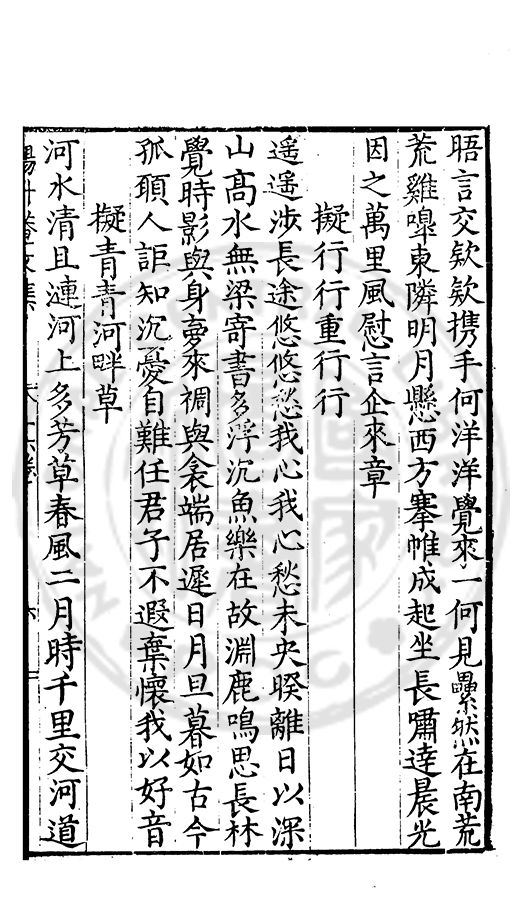 晤言交欵欵攜手何洋洋覺來一何見纍然在南荒
荒雞嘷東隣明月懸西方搴帷成起坐長嘯逹晨光
因之萬里風慰言企來章
擬行行重行行
遥遥涉長途悠悠愁我心我心愁未央暌離日以深
山髙水無梁寄書多浮沉魚樂在故淵鹿鳴思長林
覺時影與身夢來裯與衾端居遲日月旦暮如古今
孤頥人詎知沉憂自難任君子不遐棄懷我以好音
擬青青河畔草
河水清且漣河上多芳草春風二月時千里交河道